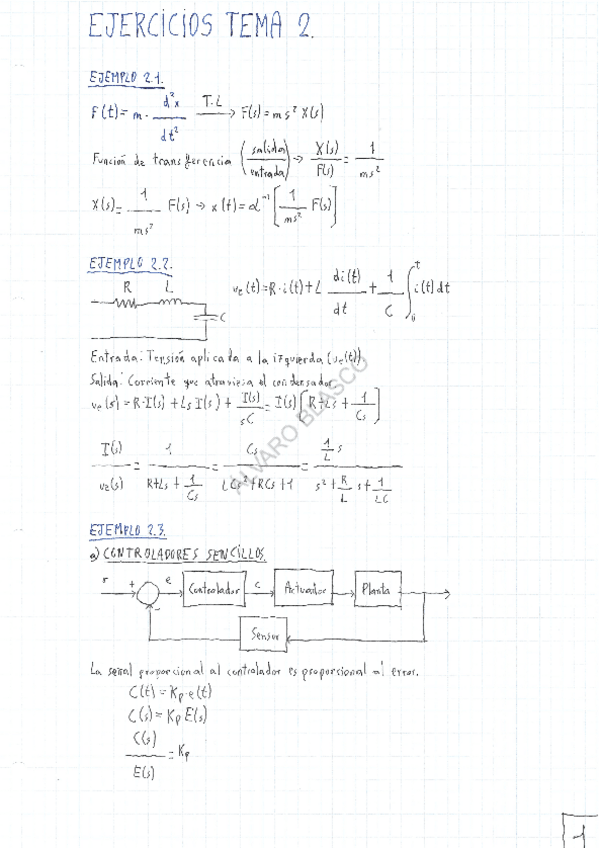 EJERCICIOS TEMA 2.
EJEMPLO 2.1.
F(t)=m·d²x/dt² T.L → F(s)=ms²X(s)
Función de transferencia (salida/entrada) → X(s)/F(s) = 1/ms²
X(s)= 1/ms² F(s) → x(t)=ℒ⁻¹[1/ms² F(s)]
EJEMPLO 2.2.
R L C
ve(t)=R·i(t)+L di(t)/dt + 1/C ∫₀ᵗ i(t)dt
Entrada: Tensión aplicada a la izquierda (ve(t))
Salida: Corriente que atraviesa el condensador
ve(s)=R·I(s)+Ls I(s)+ I(s)/sC = I(s)[R+Ls+ 1/Cs]
I(s)/ve(s) = 1/(R+Ls+1/Cs) = Cs/(LCs²+RCs+1) = (1/L s)/(s²+R/L s+1/LC)
EJEMPLO 2.3.
a) CONTROLADORES SENCILLOS.
r + - e Controlador c Actuador Planta
Sensor
La señal proporcional al controlador es proporcional al error.
C(t)=Kp·e(t)
C(s)=Kp E(s)
C(s)/E(s) = Kp
ALVARO BLASCO
1